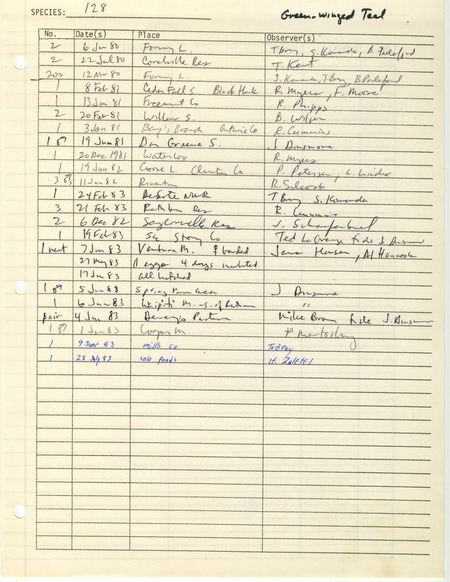 SPECIES: 128 Green-winged Teal
No. Date(s) Place Observer(s)
2 6 Jun 80 Forney L. T Bray, S. Kovanda, B. Padelford
2 22 Jul 80 Coralville Res T. Kent
200 12 Nov 80 Forney L. S. Kovanda, T Bray, B Padelford
1 8 Feb 81 Cedar Falls Black Hawk R. Myers, F. Moore
1 13 Jan 81 Fremont Co R. Phipps
2 20 Feb 81 Willow S. B. Wilson
1 3 Jan 81 Bay's Branch Guthrie Co R. Cummins
1 19 Jun 81 Dan Greene S. J Dinsmore
1 20 Dec 1981 Waterloo R. Myers
1 19 Jun 82 Goose L Clinton Co P. Petersen, L. Linder
3 11 Jun 82 Riverton R. Silcock
1 24 Feb 83 DeSoto NWR T Bray S. Kovanda
3 21 Feb 83 Rathbun Res R. Cummins
2 6 Dec 82 Saylorville Res J.
1 19 Feb 83 Story Co Ted LaGrange fide J Dinsmore
1 nest 7 Jun 83 Ventura M. Jane Hansen, Al Hancock
27 May 83 eggs 4 days incubated
17 Jun 83 all hatched
1 5 Jun 83 Spring Run area J Dinsmore
1 6 Jun 83 "
pair 4 Jun 83 Mike Brown fide J. Dinsmore
1 1 Jun 83 Cooper M.
1 9 June 83 Mills Co T Bray
1 28 July 83 Cole Ponds H. Zaletel